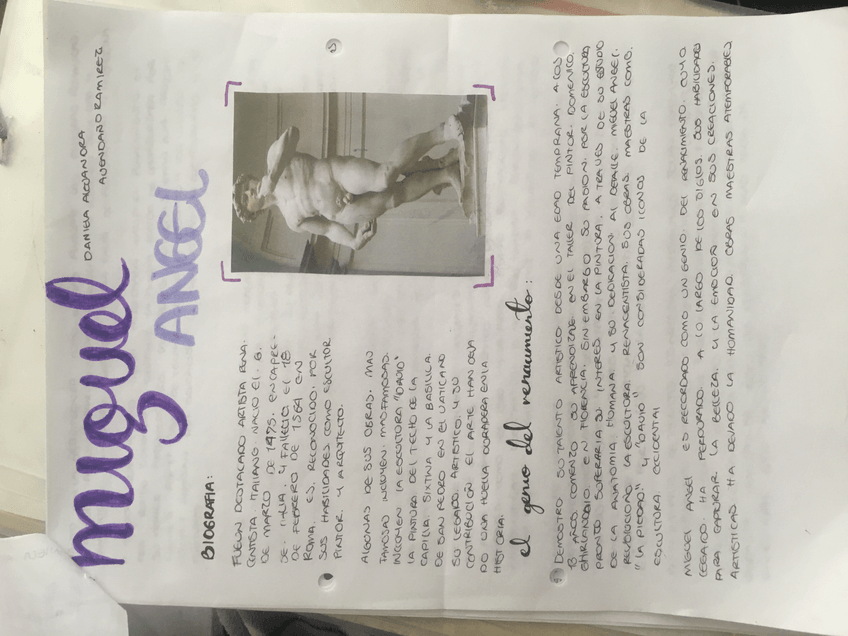 Miguel
ANGEL
DANIELA ALEJANDRA
AVENDAÑO RAMIREZ
BIOGRAFIA:
FUE UN DESTACADO ARTISTA RENA-
CENTISTA ITALIANO. NACIO EL 6.
DE MARZO DE 1475. EN CAPRE-
SE. ITALIA. Y FALLECIO EL 18
DE FEBRERO DE 1564 EN
ROMA. ES RECONOCIDO. POR
SUS HABILIDADES COMO ESCULTOR
PINTOR. Y ARQUITECTO.
ALGUNAS DE SUS OBRAS. MAS
FAMOSAS INCLUYEN: MAS FAMOSAS.
INCLUYEN LA ESCULTURA "DAVID"
LA PINTURA DEL TECHO DE LA
CAPILLA. SIXTINA Y LA BASILICA.
DE SAN PEDRO EN EL VATICANO
SU LEGADO. ARTISTICO. Y SU
CONTRIBUCIÓN EL ARTE HAN DEJA
DO UNA HUELLA DURADERA EN LA
HISTORIA.
el genio del renacimiento:
DEMOSTRO SU TALENTO ARTISTICO DESDE UNA EDAD TEMPRANA. A LOS
13 AÑOS. COMENZO SU APRENDIZAJE EN EL TALLER DEL PINTOR. DOMENICO.
GHIRLANDAIO EN FLORENCIA. SIN EMBARGO SU PASION. POR LA ESCULTURA
PRONTO SUPERARIA SU INTERES EN LA PINTURA. A TRAVES DE SU ESTUDIO
DE LA ANATOMIA HUMANA Y SU DEDICACION AL DETALLE. MIGUEL ANGEL.
REVOLUCIONO LA ESCULTURA. RENACENTISTA. SUS OBRAS. MAESTRAS COMO.
"LA PIEDAD" Y "DAVID" SON CONSIDERADAS ICONOS DE LA
ESCULTURA OCCIDENTAL
MIGUEL ANGEL ES RECORDADO COMO UN GENIO. DEL RENACIMIENTO. CUYO.
LEGADO. HA PERDURADO. A LO LARGO DE LOS SIGLOS. SUS HABILIDADES
PARA CAPTURAR LA BELLEZA. Y LA EMOCIÓN EN SUS CREACIONES.
ARTISTICAS HA DEJADO LA HUMANIDAD. OBRAS MAESTRAS ATEMPORALES